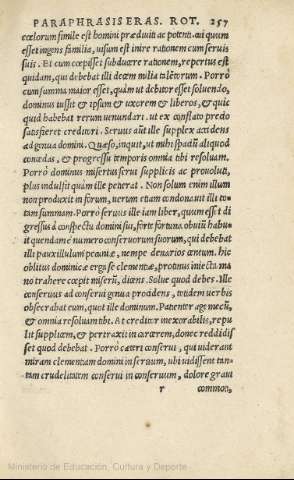 PARAPHRASIS ERAS. ROT. 257
cœlorum simile est homini prædiuiti ac potenti. cui quum
esset ingens familia, uisum est inire rationem cum seruis
suis. Et cum cœpisset subducere rationem, repertus est
quidam, qui debebat illi decem milia talẽtorum. Porrò
cum summa maior esset, quàm ut debitor esset soluendo,
dominus iussit & ipsum & uxorem & liberos, & quic
quid habebat rerum uenundari. ut ex conflato precio
satisfieret creditori. Seruus aũt ille supplex accidens
ad genua domini. Quæso, inquit, ut mihi spatiũ aliquod
concedas, & progressu temporis omnia tibi resoluam.
Porrò dominus misertus serui supplicis ac prouoluti,
plus indulsit quàm ille petierat. Non solum enim illum
non produxit in forum, uerum etiam condonauit illi to-
tam summam. Porrò seruus ille iam liber, quum esset di
gressus à conspectu domini sui, forte fortuna obuiũ habu-
it quendam è numero conseruorum suorum, qui debebat
illi pauxillulum pecuniæ, nempe denarios centum. hic
oblitus dominicæ erga se clementiæ, protinus iniecta ma
no trahere cœpit miserũ, dicens. Solue quod debes. Ille
conseruus ad conserui genua procidens, totidem uerbis
obsecrabat eum, quot ille dominum. Patienter age mecũ,
& omnia resoluam tibi. At creditor inexorabilis, repu
lit supplicem, & pertraxit in carcerem, donec reddidis
set quod debebat. Porrò cæteri conserui, qui uiderant
miram clementiam domini in seruum, ubi uidissent tan-
tam crudelitatem conserui in conseruum, dolore graui
r commoti,
Ministerio de Educación, Cultura y Deporte